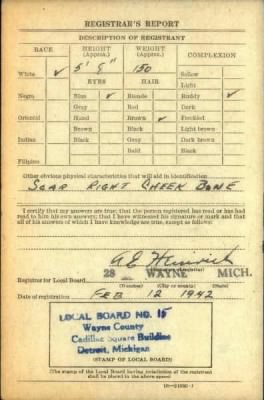 REGISTRAR'S REPORT
DESCRIPTION OF REGISTRANT
RACE HEIGHT (Approx.) WEIGHT (Approx.) COMPLEXION
5' 150 Sallow
White ✓ EYES HAIR Light
Negro Blue ✓ Blonde Ruddy ✓
Gray Red Dark
Oriental Hazel Brown ✓ Freckled
Brown Black Light brown
Indian Black Gray Dark brown
Bald Black
Filipino
Other obvious physical characteristics that will aid in identification
SCAR RIGHT CHEEK BONE
I certify that my answers are true; that the person registered has read or has had
read to him his own answers; that I have witnessed his signature or mark and that all
of his answers of which I have knowledge are true, except as follows:
Registrar for Local Board 28 WAYNE MICH.
(Number) (City or county) (State)
Date of registration FEB 12 1942
LOCAL BOARD NO. 15
Wayne County
Cadillac Square Building
Detroit, Michigan
(STAMP OF LOCAL BOARD)
(The stamp of the Local Board having jurisdiction of the registrant
shall be placed in the above space)